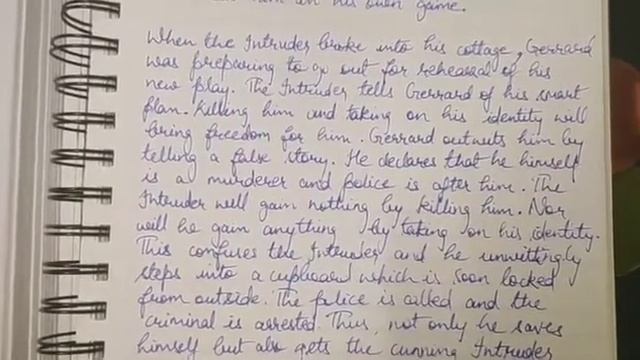 him in his own game.
When the Intruder broke into his cottage, Gerrard
was preparing to go out for rehearsal of his
new play. The Intruder tells Gerrard of his smart
plan. Killing him and taking on his identity will
bring freedom for him. Gerrard outwits him by
telling a false story. He declares that he himself
is a murderer and police is after him. The
Intruder will gain nothing by killing him. Nor
will he gain anything by taking on his identity.
This confuses the Intruder and he unwittingly
steps into a cupboard which is soon locked
from outside. The police is called and the
criminal is arrested. Thus, not only he saves
himself but also gets the cunning Intruder